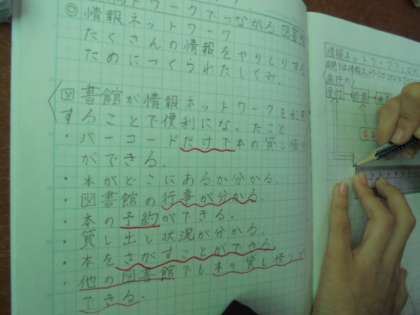 ットワークでつながる図書館
◎情報ネットワーク
たくさんの情報をやりとりする
ためにつくられたしくみ。
図書館が情報ネットワークを利用
することで便利になったこと
・バーコードだけで本の貸し借り
ができる。
・本がどこにあるか分かる。
・図書館の行事が分かる
・本の予約ができる。
・貸し出し状況が分かる。
・本をさがすことができる
・他の図書館でも本の貸し借りが
できる。
情報ネットワーク